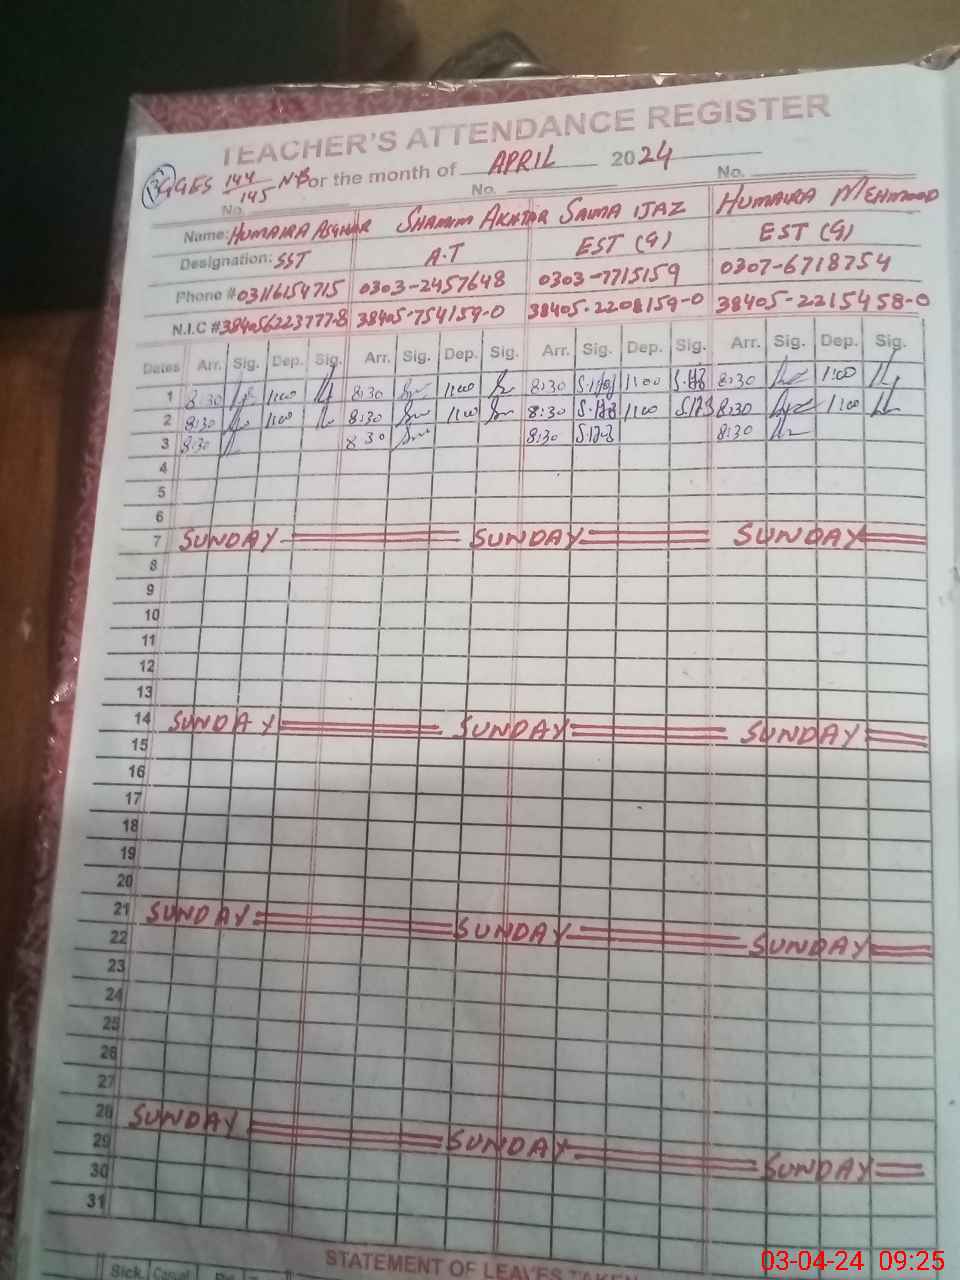 TEACHER'S ATTENDANCE REGISTER
GGES 144/145 NB For the month of APRIL 2024
No. No. No.
Name: HUMAIRA ASGHAR SHAMIM AKHTAR SAIMA IJAZ HUMAIRA MEHMOOD
Designation: SST A.T EST (G) EST (G)
Phone # 03116154715 0303-2457648 0303-7715159 0307-6718754
N.I.C # 3840562237778 38405-754159-0 38405-2208159-0 38405-2215458-0
Dates Arr. Sig. Dep. Sig. Arr. Sig. Dep. Sig. Arr. Sig. Dep. Sig. Arr. Sig. Dep. Sig.
1 8:30 1:00 8:30 1:00 8:30 1:00 8:30 1:00
2 8:30 1:00 8:30 1:00 8:30 1:00 8:30 1:00
3 8:30 8:30 8:30 8:30
4
5
6
7 SUNDAY SUNDAY SUNDAY
8
9
10
11
12
13
14 SUNDAY SUNDAY SUNDAY
15
16
17
18
19
20
21 SUNDAY SUNDAY SUNDAY
22
23
24
25
26
27
28 SUNDAY SUNDAY SUNDAY
29
30
31
STATEMENT OF LEAVES TAKEN
Sick Casual
03-04-24 09:25